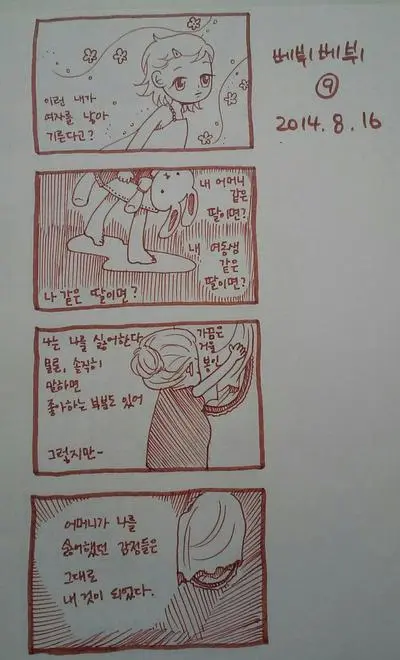 베뷔베뷔
⑨
2014.8.16
이런 내가
여자를 낳아
기른다고?
내 어머니
같은
딸이면?
내 여동생
같은
딸이면?
나 같은 딸이면?
나는 나를 싫어한다
물론, 솔직히
말하면
좋아하는 부분도 있어
그렇지만-
가끔은
거울
봉인
어머니가 나를
싫어했던 감정들은
그대로
내 것이 되었다.